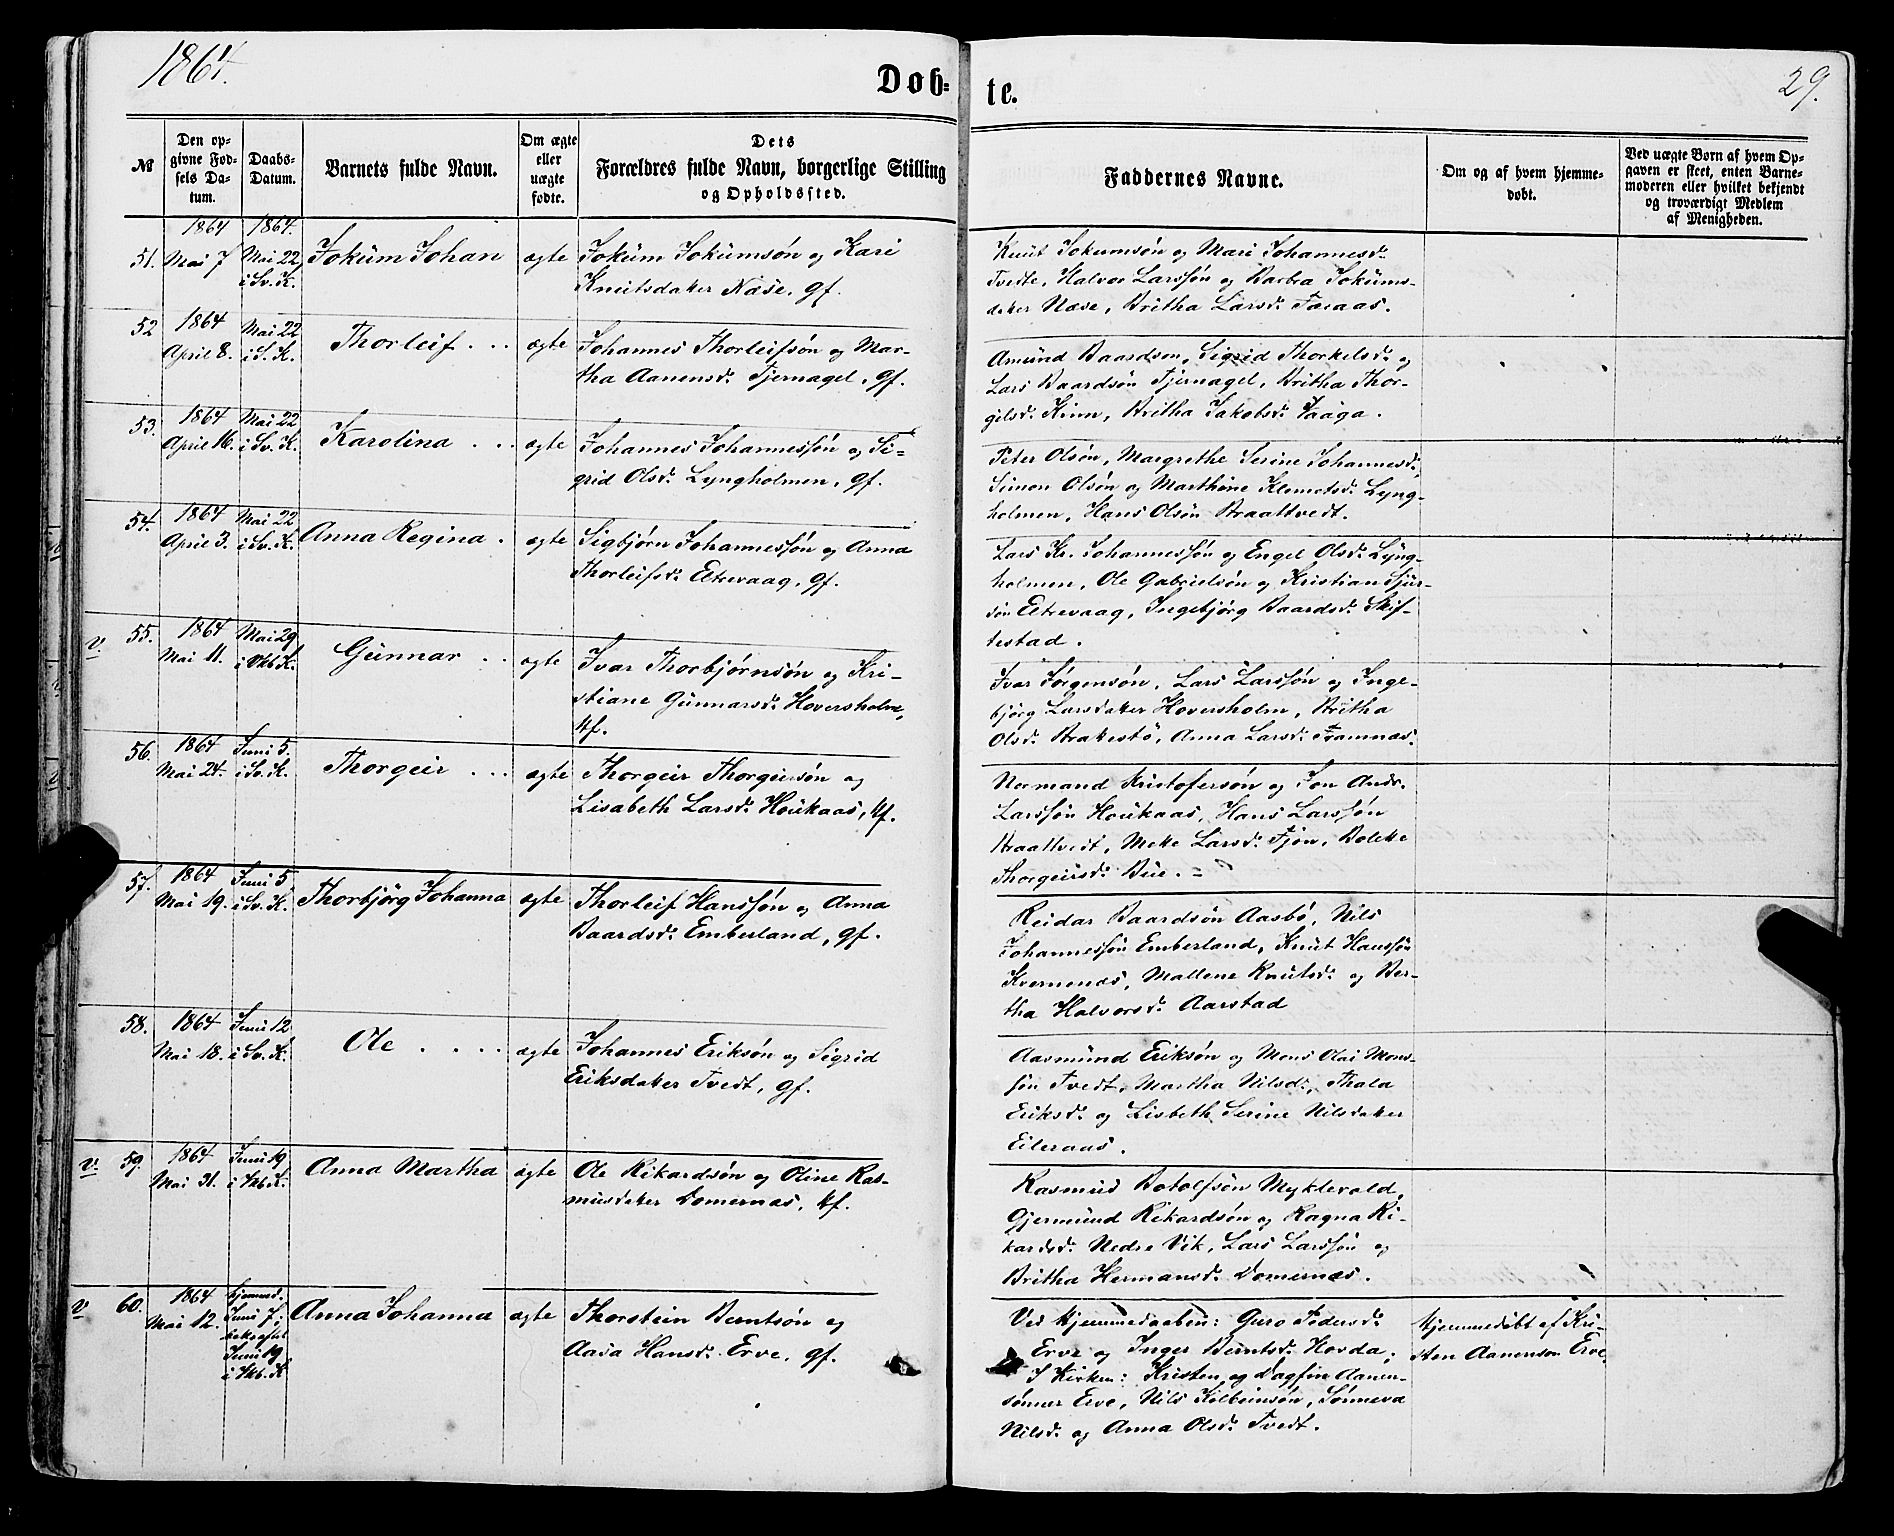 1864.
Døb-
te.
29.
№
Den op-
givne Fød-
sels Da-
tum.
Daabs-
Datum.
Barnets fulde Navn.
Om ægte
eller
uægte
fødte.
Dets
Forældres fulde Navn, borgerlige Stilling
og Opholdssted.
Faddernes Navne.
Om og af hvem hjemme-
døbt.
Ved uægte Børn af hvem Op-
gaven er skeet, enten Barne-
moderen eller hvilket bekjendt
og troværdigt Medlem
af Menigheden.
51.
1864
Mai 7
1864.
Mai 22
i Sv. K.
Jokum Johan
ægte
Jokum Jokumsøn og Kari
Knutsdaker Næse, gf.
Knut Jokumsøn og Mari Johannesd.
Tvedte, Halvor Larssøn og Barbra Jokums-
daker Næse, Britha Larsd.
52
1864
April 8.
Mai 22
i S. K.
Thorleif . . .
ægte
Johannes Thorleifsøn og Mar-
tha Aanensd. Tjernagel, gf.
Amund Baardsøn, Sigrid Thorkelsd. og
Lars Baardsøn Tjernagel, Britha Thor-
gilsd. Kinn, Britha Jakobsd. Vaaga.
53.
1864
April 16.
Mai 22
i Sv. K.
Karolina . . .
ægte
Johannes Johannessøn og Si-
grid Olsd. Lyngholmen, gf.
Peter Olsøn, Margrethe Serine Johannesd.,
Simon Olsøn og Marthine Klemetsd. Lyng-
holmen, Hans Olsøn Braattvedt.
54.
1864
April 3.
Mai 22
i Sv. K.
Anna Regina .
ægte
Sigbjørn Johannessøn og Anna
Thorleifsd. Eltrevaag, gf.
Lars Kr. Johannessøn og Engel Olsd. Lyng-
holmen, Ole Gabrielsøn og Kristian Sjur-
søn Eltrevaag, Ingebjørg Baardsd. Skif-
testad.
v.
55.
1864
Mai 11.
Mai 29
i Mb. K.
Gunnar . .
ægte
Ivar Thorbjørnsøn og Kri-
stiane Gunnarsd. Hoversholm,
kf.
Ivar Jørgensøn, Lars Larssøn og Inge-
bjørg Larsdaker Hoversholm, Britha
Olsd. Brakestø, Anna Larsd. Framnæs.
56.
1864
Mai 24.
Juni 5.
i Sv. K.
Thorgeir . . .
ægte
Thorgeir Thorgeirsøn og
Lisabeth Larsd. Houkaas, kf.
Normand Kristofersøn og Jon Andr.
Larssøn Houkaas, Hans Larssøn
Braattvedt, Meke Larsd. Fjøn, Bolette
Thorgeirsd. Bue.
57.
1864
Mai 19.
Juni 5
i Sv. K.
Thorbjørg Johanna
ægte
Thorleif Hanssøn og Anna
Baardsd. Emberland, gf.
Reidar Baardsøn Aasbø, Nils
Johannessøn Emberland, Knut Hanssøn
Kvernenæs, Mallene Knutsd. og Ber-
tha Halvorsd. Aarstad
58.
1864
Mai 18.
Juni 12
i Sv. K.
Ole . . . .
ægte
Johannes Eriksøn og Sigrid
Eriksdaker Tvedt, gf.
Aasmund Eriksøn og Mons Olai Mons-
søn Tvedt, Martha Nilsd., Thala
Eriksd. og Lisbeth Serine Nilsdaker
Eileraas.
v.
59.
1864
Mai 31.
Juni 19
i Mb. K.
Anna Martha
ægte
Ole Rikardsøn og Oline Ras-
musdaker Domernæs, kf.
Rasmus Botolfsøn Myklevold,
Gjermund Rikardsøn og Ragna Ri-
kardsd. Nedre Vik, Lars Larssøn og
Britha Hermansd. Domernæs.
v
60.
1864
Mai 12.
hjemmed.
Juni 7,
bekræftet
Juni 19
i Mb. K
Anna Johanna
ægte
Thorstein Berntsøn og
Aasa Hansd. Erve, gf.
Ved Hjemmedaaben: Guro Pedersd.
Erve og Inger Berntsd. Hovda;
I Kirken: Kristen og Dagfin Aanen-
sønner Erve, Nils Kolbeinsøn, Sønneva
Nilsd. og Anna Olsd. Tvedt.
Hjemmedøbt af Kri-
sten Aanensøn Erve.